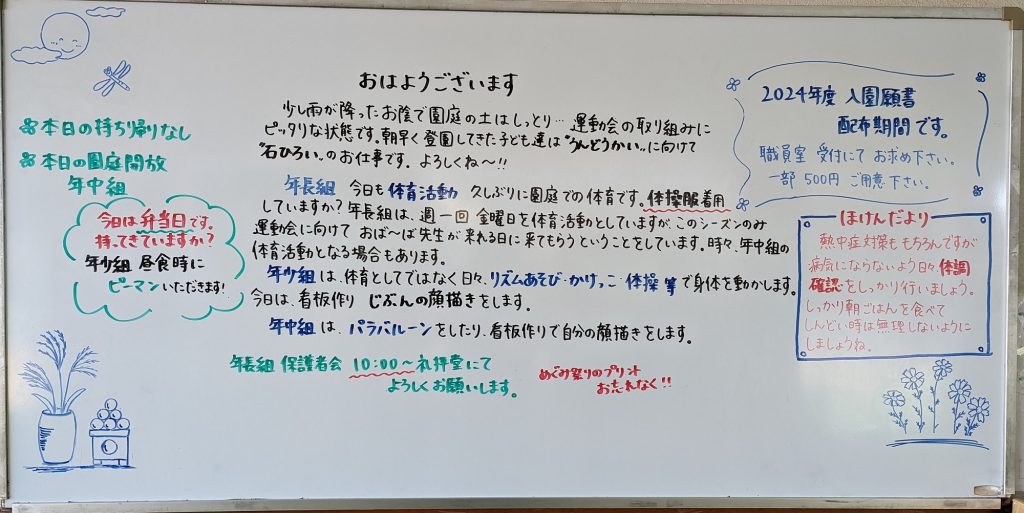 おはようございます
少し雨が降ったお陰で園庭の土はしっとり… 運動会の取り組みに
ピッタリな状態です。朝早く登園してきた子ども達は“うんどうかい„に向けて
“石ひろい„のお仕事です。よろしくね〜!!
年長組 今日も体育活動 久しぶりに園庭での体育です。体操服着用
していますか?年長組は、週一回 金曜日を体育活動としていますが、このシーズンのみ
運動会に向けて おば〜ば先生が来れる日に来てもらうということをしています。時々、年中組の
体育活動となる場合もあります。
年少組は、体育としてではなく日々、リズムあそび・かけっこ・体操 等で身体を動かします。
今日は、看板作り じぶんの顔描きをします。
年中組は、パラバルーンをしたり、看板作りで自分の顔描きをします。
年長組 保護者会 10:00〜礼拝堂にて
よろしくお願いします。
めぐみ祭りのプリント
お忘れなく!!
本日の持ち帰りなし
本日の園庭開放
年中組
今日は弁当日です。
持ってきていますか?
年少組 昼食時に
ピーマンいただきます!
2024年度 入園願書
配布期間です。
職員室 受付にて お求め下さい。
一部 500円 ご用意下さい。
ほけんだより
熱中症対策も もちろんですが
病気にならないよう日々、体調
確認をしっかり行いましょう。
しっかり朝ごはんを食べて
しんどい時は無理しないように
しましょうね。